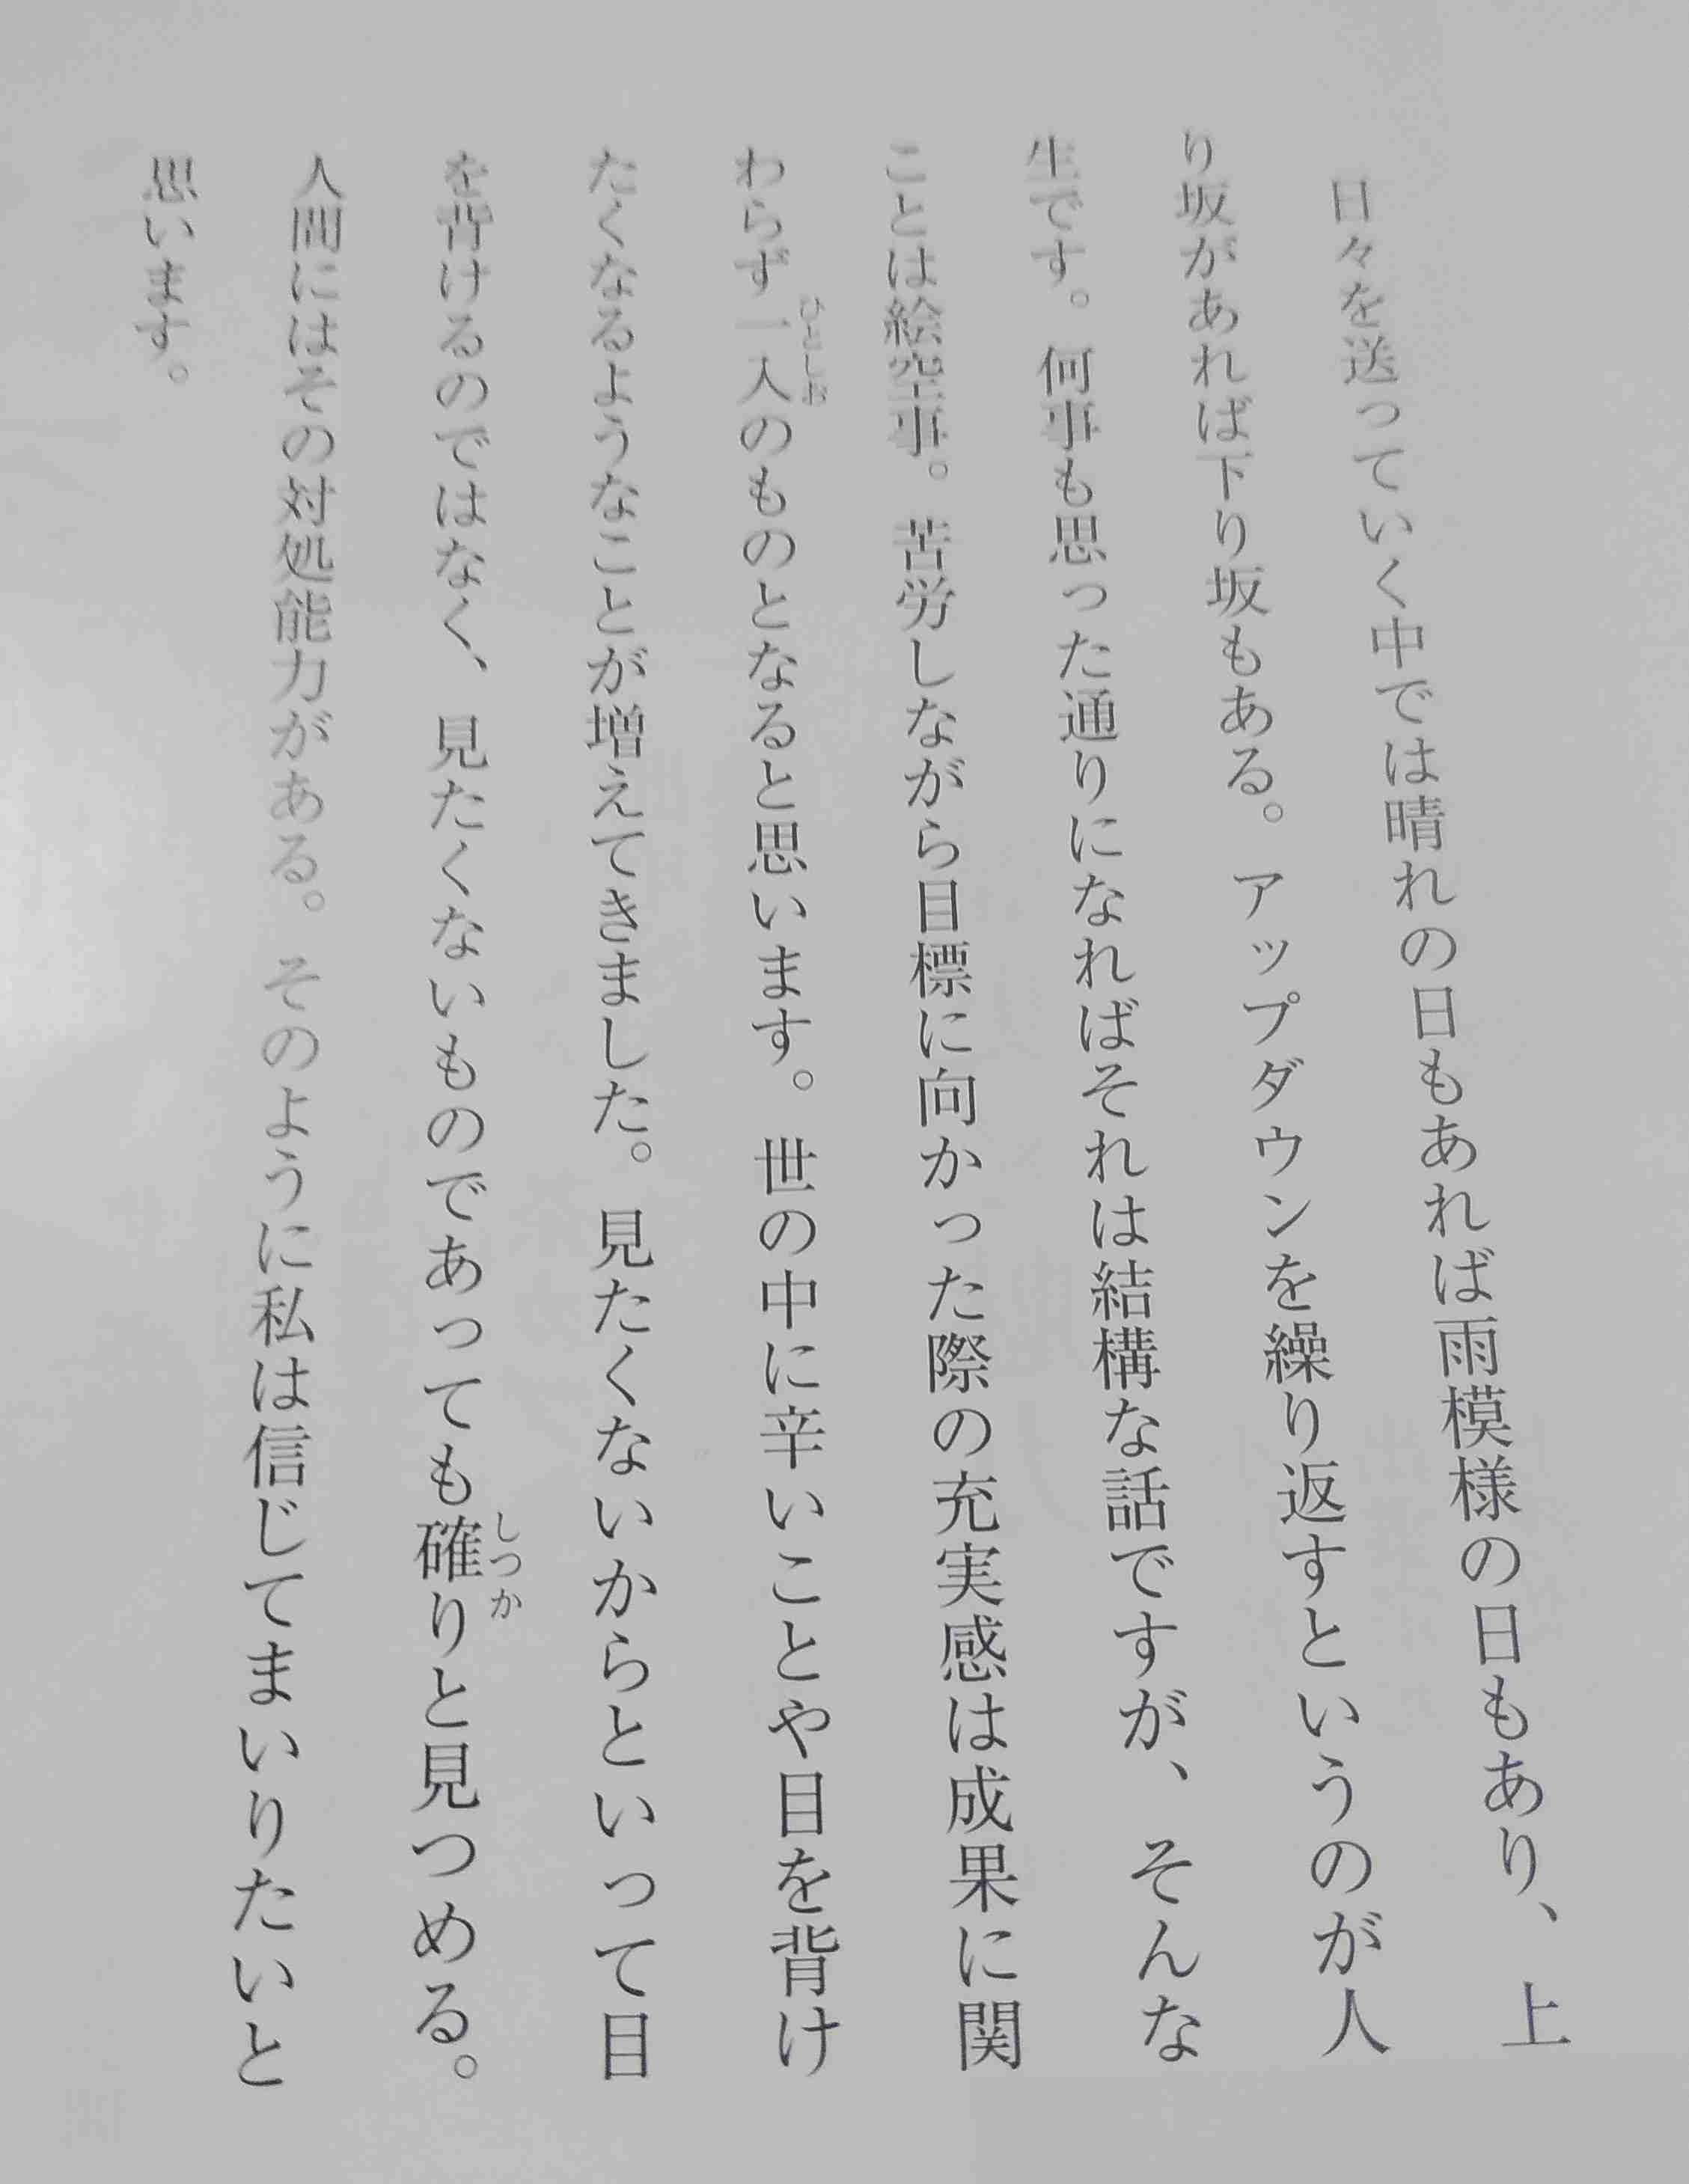 日々を送っていく中では晴れの日もあれば雨模様の日もあり、上
り坂があれば下り坂もある。アップダウンを繰り返すというのが人
生です。何事も思った通りになればそれは結構な話ですが、そんな
ことは絵空事。苦労しながら目標に向かった際の充実感は成果に関
わらず一入のものとなると思います。世の中に辛いことや目を背け
ひとしお
たくなるようなことが増えてきました。見たくないからといって目
を背けるのではなく、見たくないものであっても確りと見つめる。
しつか
人間にはその対処能力がある。そのように私は信じてまいりたいと
思います。